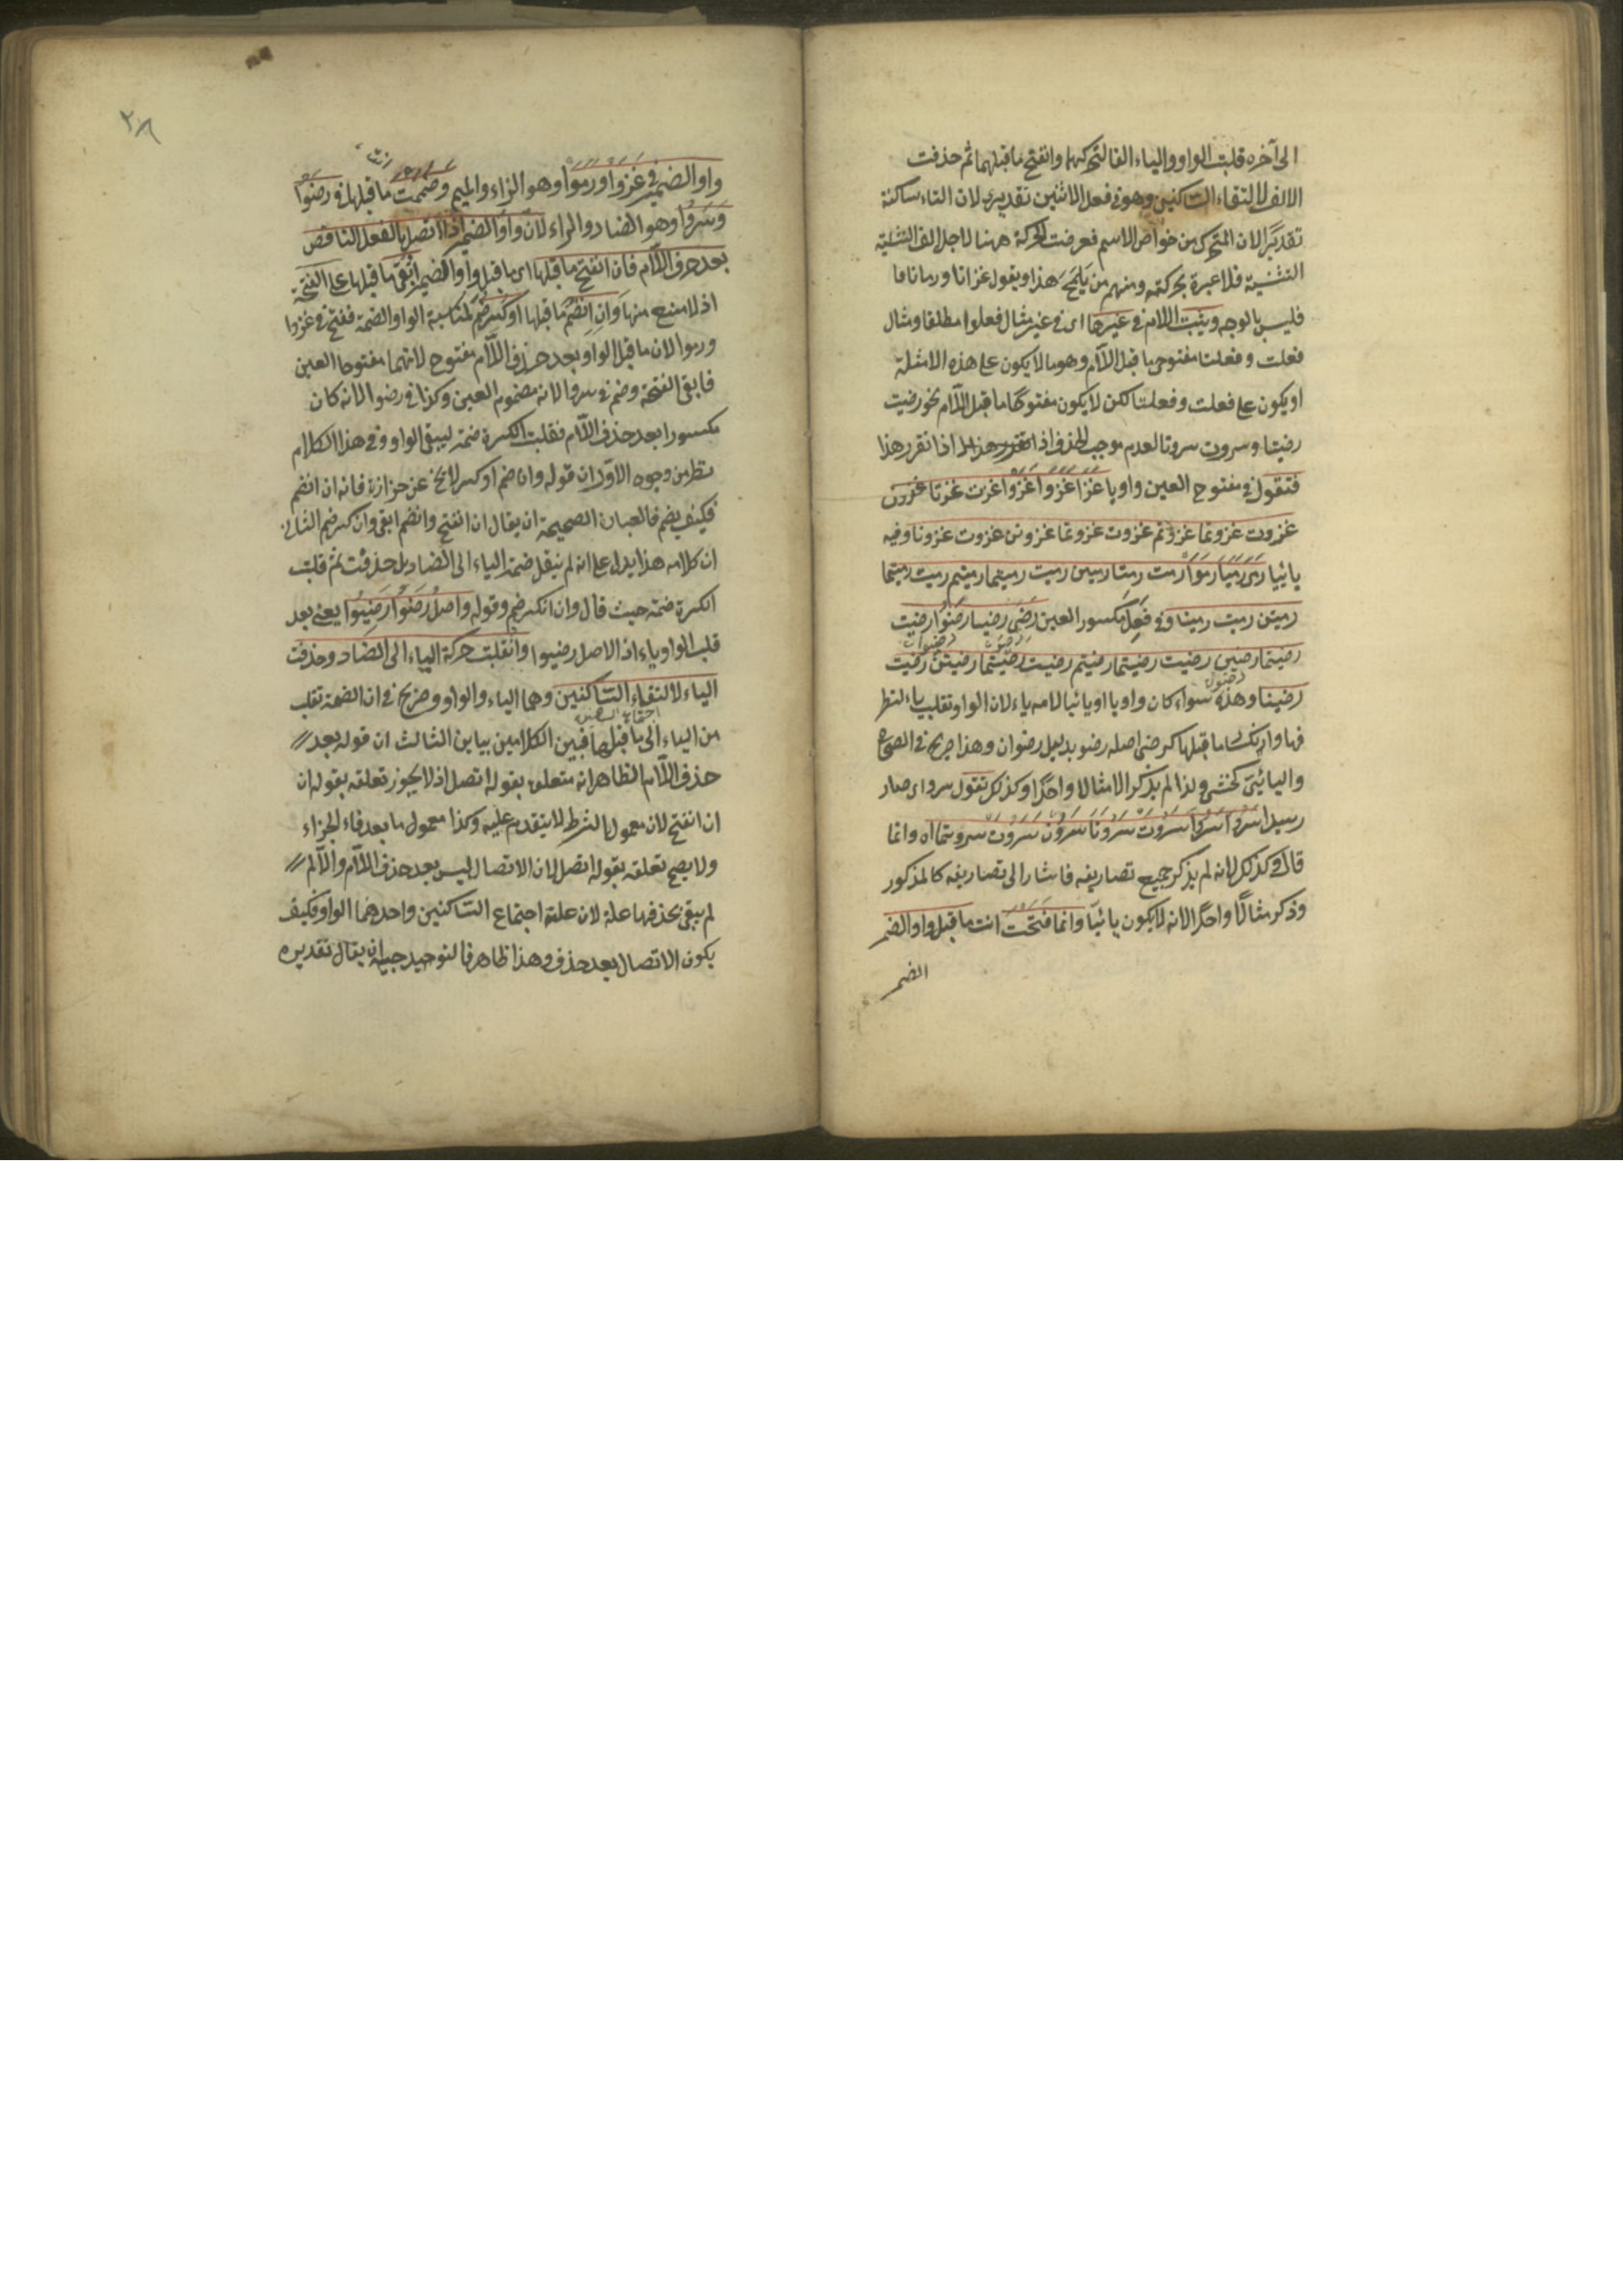 الى آخره قلبت الواو والياء الفا لتحركهما وانفتح ما قبلهما ثم حذفت
الالف لالتقاء الساكنين وهو في فعل الاثنين تقديري لان التاء ساكنة
تقديرا لان المتحرك من خواص الاسم فعرضت الحركة ههنا لاجل الف التثنية
التثنية فلا عبرة بحركته ومنهم من يلمح هذا ويقول غزاتا ورماتا فا
فليس بالوجه ويثبت اللام في غيرها اى في غير مثال فعلوا مطلقا ومثال
فعلت وفعلتا مفتوحى ما قبل اللام وهو ما لا يكون على هذه الامثلة
او يكون على فعلت وفعلتا لكن لا يكون مفتوحا ما قبل اللام نحو رضيت
رضيتا وسروت سروتا لعدم موجب الحذف اذا تقرر هذا
فتقول في مفتوح العين واويا غزا غزوا غزوا غزت غزتا غزون
غزوت غزوتما غزوتم غزوت غزوتما غزوتن غزوت غزونا وفيه
يائيا رمى رميا رموا رمت رمتا رمين رميت رميتما رميتم رميت رميتما
رميتن رميت رمينا وفي فعل مكسور العين رضى رضيا رضوا رضيت
رضيتا رضين رضيت رضيتما رضيتم رضيت رضيتما رضيتن رضيت
رضينا وهذه سواء كان واويا او يائيا لامه ياء لان الواو تقلب ياء لتطر
فها وانكسار ما قبلها كرضى اصله رضو بدليل رضوان وهذا صريح في الصحاح
واليائى كخشى ولذا لم يذكر الا مثالا واحدا وكذلك تقول سرو اى صار
سيدا سروا سروا سروت سروتا سرون سروت سروتما اه وانما
قال وكذلك لانه لم يذكر جميع تصاريفه فاشار الى تصاريفه كالمذكور
وذكر مثالا واحدا لانه لا يكون يائيا وانما فتحت انت ما قبل واو الضمير
الضمير
٢٨
واو الضمير في غزوا ورموا وهو الزاء والميم وضممت ما قبلها في رضوا
وسروا وهو الضاد والراء لان واو الضمير اذا اتصل بالفعل الناقص
بعد حذف اللام فان انفتح ما قبلها اى ما قبل واو الضمير ابقى ما قبلها على الفتحة
اذ لا منع منها وان انضم ما قبلها او كسر ضم لمناسبة الواو الضمة ففتح في غزوا
ورموا لان ما قبل الواو بعد حذف اللام مفتوح لانهما مفتوحا العين
فابقى الفتحة وضم في سروا لانه مضموم العين وكذا في رضوا لانه كان
مكسورا بعد حذف اللام فقلبت الكسرة ضمة ليبقى الواو وفي هذا الكلام
نظر من وجوه الاول ان قوله وان ضم او كسر لا يخ عن حزازة فانه ان انضم
فكيف يضم فالعبارة الصحيحة ان يقال ان انفتح وانضم ابقى وان كسر ضم الثانى
ان كلامه هذا يدل على انه لم ينقل ضمة الياء الى الضاد بل حذفت ثم قلبت
الكسرة ضمة حيث قال وان انكسر ضم وقوله واصل رضوا رضيوا يعنى بعد
قلب الواو ياء اذ الاصل رضيوا وانقلبت حركة الياء الى الضاد وحذفت
الياء لالتقاء الساكنين وهما الياء والواو وصريح في ان الضمة تقلب
من الياء الى ما قبلها فبين الكلامين بباين الثالث ان قوله بعد
حذف اللام الظاهر انه متعلق بقوله اتصل اذ لا يجوز تعلقه بقوله ان
ان انفتح لان معمول الشرط لا يتقدم عليه وكذا معمول ما بعد فاء الجزاء
ولا يصح تعلقه بقوله اتصل لان الاتصال ليس بعد حذف اللام والا لم
لم يبقى لحذفها علة لان علته اجتماع الساكنين واحدهما الواو فكيف
يكون الاتصال بعد حذف وهذا ظاهر فالتوجيه ان يقال تقديره